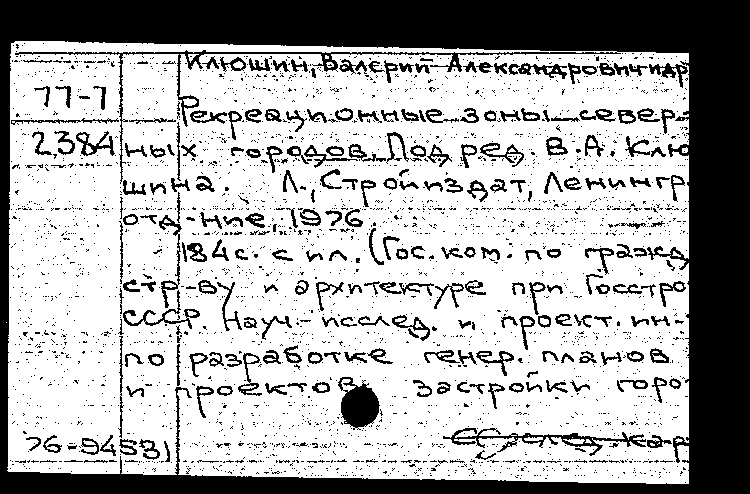 Клюшин, Валерий Александрович и др
77-7
Рекреационные зоны север-
2384 ных городов. Под ред. В.А. Клю
шина. Л., Стройиздат, Ленингр.
отд-ние, 1976.
184с. с ил. (Гос. ком. по гражд
стр-ву и архитектуре при Госстро
СССР. Науч.-исслед. и проект. ин-
по разработке генер. планов
и проектов застройки горо
76-94581 След. кар